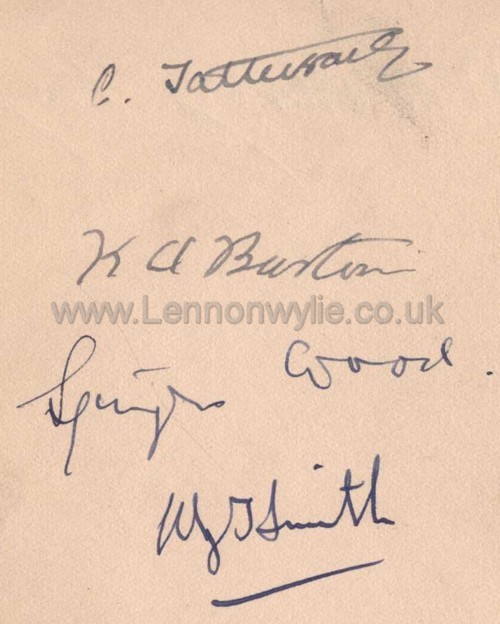 C. Tattersall
K A Burton
www.Lennonwylie.co.uk
Wood.
Smith